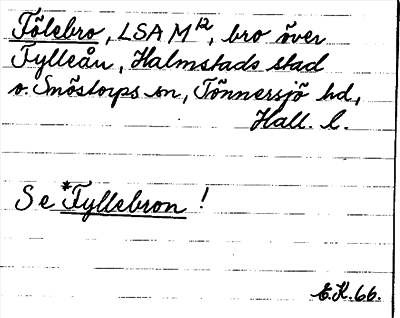 Fölebro, LSA M¹², bro över
Fylleån, Halmstads stad
o. Snöstorps sn, Tönnersjö hd,
Hall. l.
Se *Fyllebron!
E.K. 66.